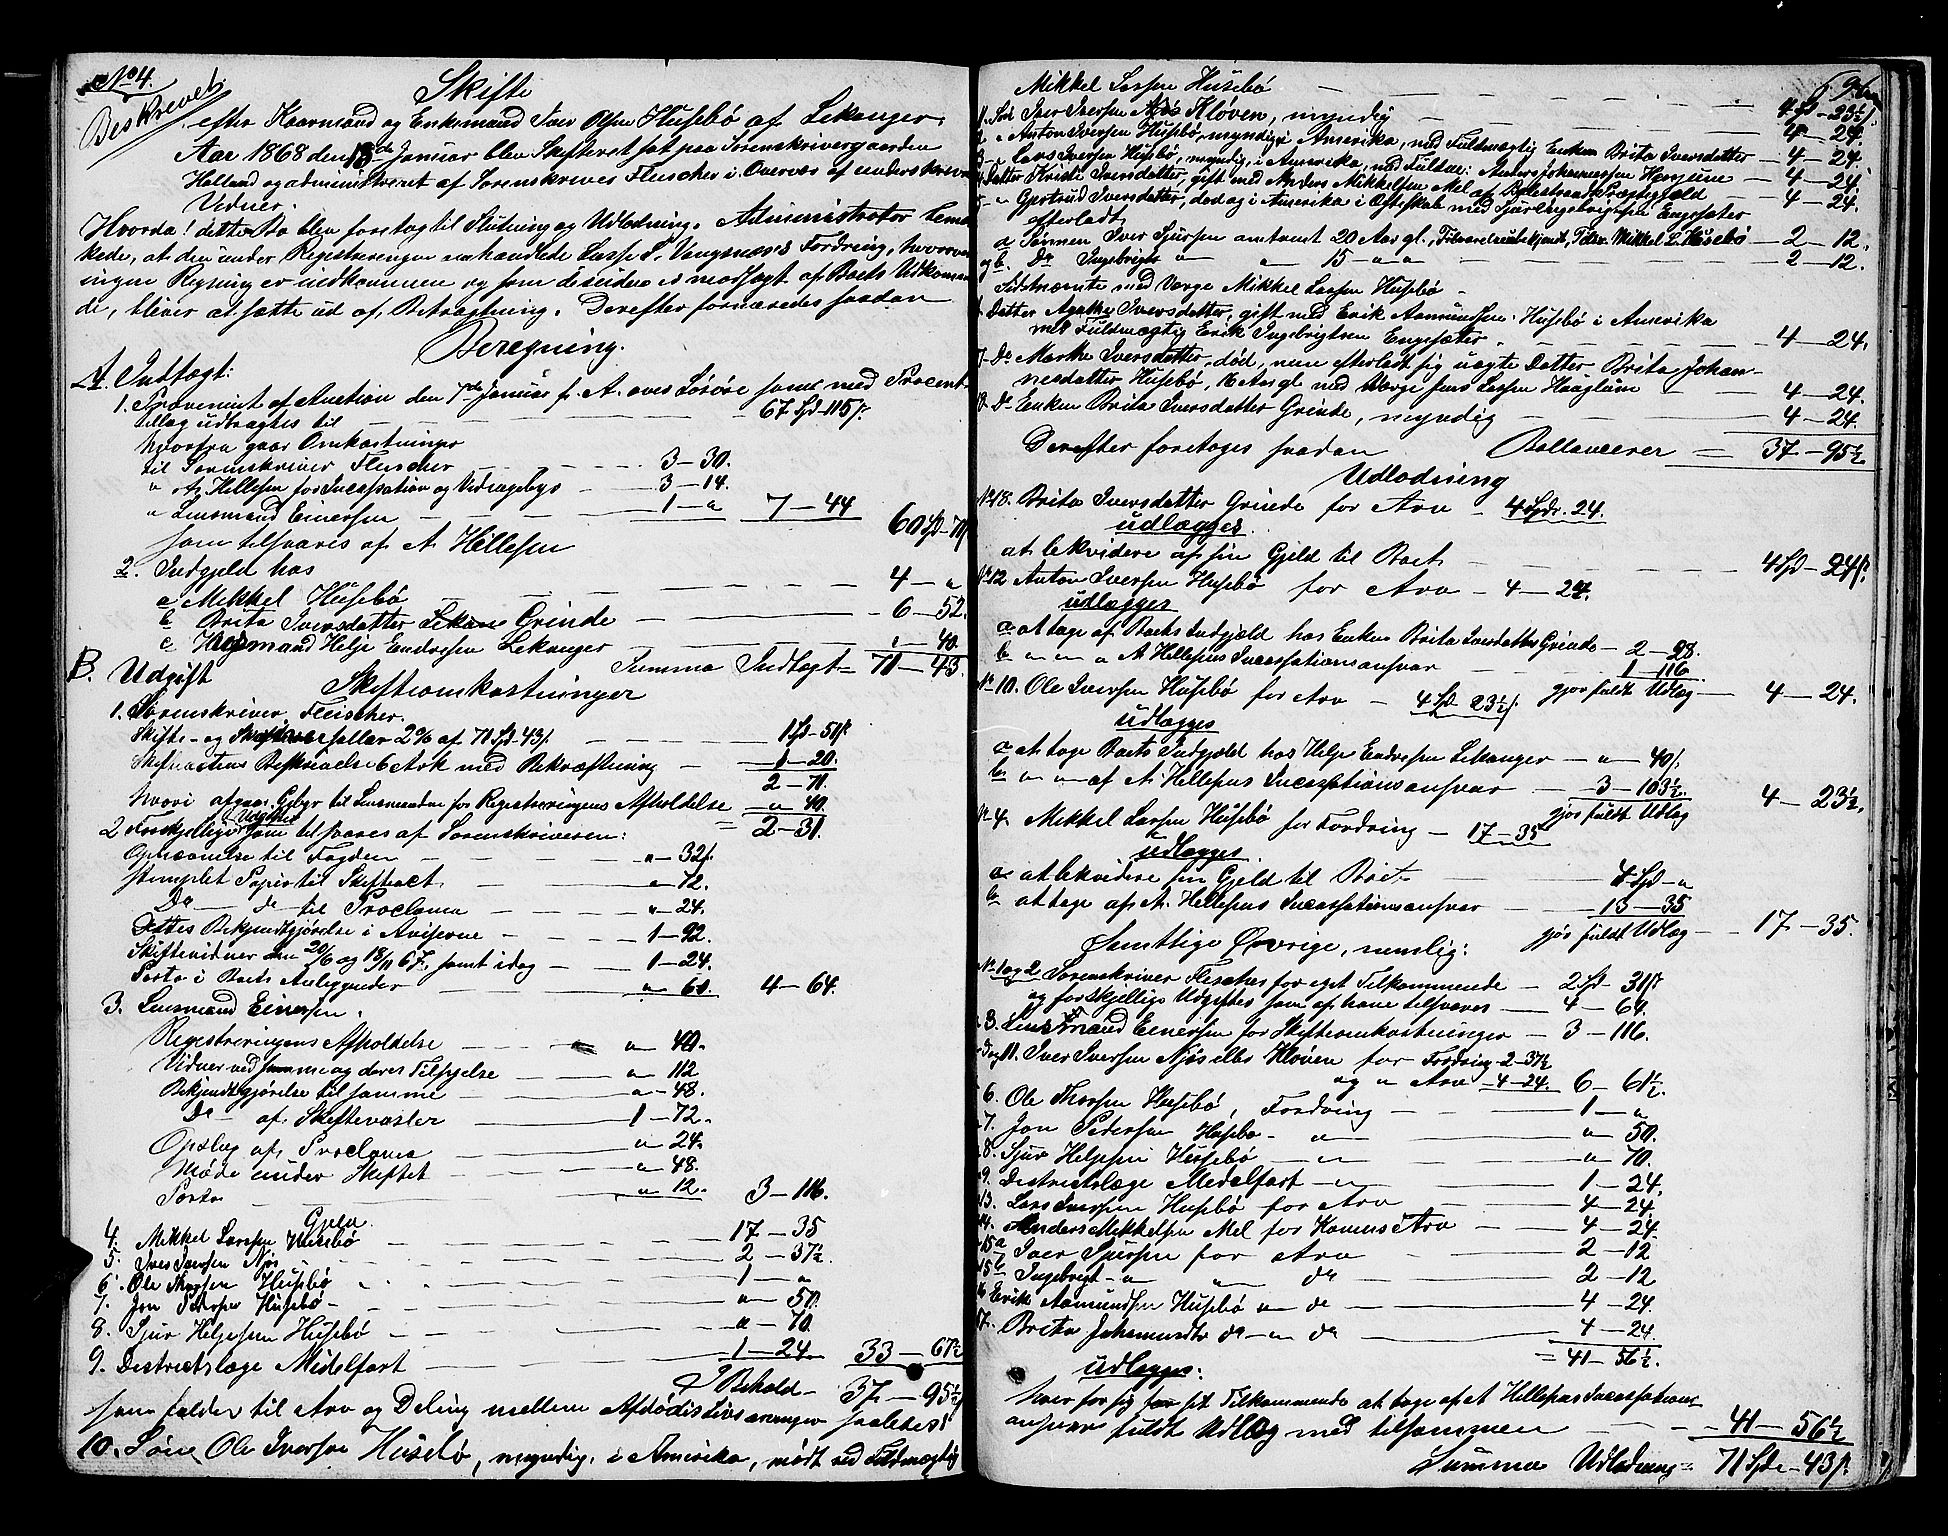 No 4.
Beskrevet.
Skifte
efter Kaarmand og Enkemand Iver Olsen Husebø af Lekanger.
Aar 1868 den 18de Januar blev Skifteret sat paa Sorenskrivergaarden
Helland og administreret af Sorenskriver Fleischer i Overvær af underskrevne
Vidner.
Hvorda! dette Bo blev foretag til Slutning og Udlodning. Administrator bemær-
kede, at den under Registreringen omhandlede Lasse L. Vengsnæs's Fordring, hvorom
ingen Regning er indkommen og som desuden er modsagt af Boets Vedkommen
de, bliver at sætte ud af Betragtning. Derefter forværedes saadan
Beregning.
A. Indtægt:
1. Provenuet af Auction den 7de Januar f. A. over Løsøre samt med Procent-
tillæg udbragtes til — 67 Spd - 115 s.
hvorfra gaar Omkostninger
til Sorenskriver Fleischer — 3 - 30.
" A. Hellesen for Incassation og Vidragebys — 3 - 14.
" Lensmand Einersen — 1 - " 7 - 44 60 Spd - 71 s
som tilsvares af A. Hellesen
2. Indgjeld hos
a Mikkel Husebø — 4 - "
b Brita Iversdatter Grinde — 6 - 52.
c Husmand Helje Endresen Lekanger — " - 40.
Summa Indtægt — 71 - 43.
B. Udgift
Skifteomkostninger
1. Sorenskriver Fleischer.
Skifte- og sallær 2% af 71 Spd - 43 s. — 1 Spd - 51 s.
Skifteactens Beskrivelse 6 Ark med Bekræftning — 1 - 20.
2 - 71.
hvori afgaar Gebyr til Lensmanden for Registreringens Afholdelse — " - 40.
= 2 - 31.
2 Forskjellige Udgifter som tilsvares af Sorenskriveren:
Opnævnelse til Fogden — " - 32 s.
stemplet Papir til Skifteact — " - 72.
Do — do til Proclama — " - 24.
Dettes Bekjendtgjørelse i Aviserne — 1 - 92.
Skiftevidner den 20/6 og 18/11 67, samt idag — 1 - 24.
Porto i Boets Anliggender — " - 60. 4 - 64.
3. Lensmand Einersen.
Registreringens Afholdelse — " - 40.
Vidner ved samme og deres Tilsigelse — " - 112
Bekjendtgjørelse til samme — " - 48.
Do — af Skiftevasler — 1 - 72.
Opslag af Proclama — " - 24.
Møde under Skiftet — " - 48.
Porto — " - 12. 3 - 116.
Gjeld.
4. Mikkel Larsen Husebø — 17 - 35
5. Iver Iversen Njøs — 2 - 37½
6. Ole Thorsen Husebø — 1 - "
7. Jon Pedersen Husebø — " - 50.
8. Sjur Helgesen Husebø — " - 70.
9. Districtslæge Midelfart — 1 - 24. 33 - 67½
I Behold — 37 - 95½
som falder til Arv og Deling mellem Afdødes Livsarvinger saaledes!
10. Søn Ole Iversen Husebø, myndig, i Amerika, mødt ved Fuldmægtig
Mikkel Larsen Husebø — 4 Spd - 23½ s.
11. Søn Iver Iversen Njøs Kløven, myndig — 4 - 24.
2. " Anton Iversen Husebø, myndig i Amerika, med Fuldmægtig Enken Brita Iversdatter — 4 - 24.
3. " Lars Iversen Husebø, myndig, i Amerika, med Fuldm: Anders Johannessen Henjum — 4 - 24.
4. Datter Kristi Iversdatter, gift med Anders Mikkelsen Mel af Balestrand Præstegjeld — 4 - 24.
5. " Gjertrud Iversdatter, død og i Amerika i Ægteskab med Sjur Ingebrigtsen Engesæter
efterladt
a Sønnen Iver Sjursen omtrent 20 Aar gl., Tilværelse ubekjendt, Tilsv. Mikkel L. Husebø — 2 - 12.
og b. Do Ingebrigt " " 15 " " — 2 - 12.
Sidstnævnte med Værge Mikkel Larsen Husebø
6. Datter Agathe Iversdatter, gift med Erik Aamundsen Husebø i Amerika
med Fuldmægtig Erik Ingebrigtsen Engesæter — 4 - 24.
7. Do Marthe Iversdatter, død, men efterladt sig uægte Datter Brita Johan-
nesdatter Husebø, 16 Aar gl med Værge Jens Larsen Haaglum — 4 - 24.
8. Do Enken Brita Iversdatter Grinde, myndig — 4 - 24.
Derefter foretoges saadan Ballancerer = 37 - 95½
Udlodning
No 18. Brita Iversdatter Grinde for Arv — 4 Spd. 24.
udlægges
at lekvidere af sin Gjeld til Boet — 4 Spd - 24 s.
No 12 Anton Iversen Husebø for Arv — 4 - 24.
udlægges
a at tage af Boets Indgjæld hos Enken Brita Iversdatter Grinde — 2 - 28.
b " " " A. Hellesens Incassationsansvar — 1 - 116
gjør fuldt Udlæg — 4 - 24.
No 10. Ole Iversen Husebø for Arv — 4 Spd 23½ s.
udlægges
a at tage Boets Indgjæld hos Helje Endresen Lekanger — " - 40 s.
b " " " af A. Hellesens Incassationsansvar — 3 - 103½.
gjør fuldt Udlæg 4 - 23½.
No 4. Mikkel Larsen Husebø for Fordring — 17 - 35
udlægges
a at lekvidere sin Gjeld til Boet — 4 Spd - "
b at tage af A. Hellesens Incassationsansvar — 13 - 35
gjør fuldt Udlæg — 17 - 35.
Samtlige Øvrige, nemlig:
No 1 og 2 Sorenskriver Fleischer for eget Tilkommende — 2 Spd - 31 s
og forskjellige Udgifter som af ham tilsvares — 4 - 64.
3. Lensmand Einersen for Skifteomkostninger — 3 - 116.
5 og 11. Iver Iversen Njøs elbs Kløven for Fordring - 2 - 37½
og " Arv - 4 - 24. 6 - 61½.
6. Ole Thorsen Husebø, Fordring — 1 - "
7. Jon Pedersen Husebø — " — " - 50.
8. Sjur Helgesen Husebø — " — " - 70.
9. Districtslæge Medelfart — " — 1 - 24.
13. Lars Iversen Husebø for Arv — 4 - 24.
14. Anders Mikkelsen Mel for Konens Arv — 4 - 24.
15 a Iver Sjursen for Arv — 2 - 12
15 b Ingebrigt - " " do — 2 - 12
16 Erik Aamundsen Husebø " do — 4 - 24.
17. Brita Johannesdtr do - " do — 4 - 24.
= 41 - 56½.
udlægges:
hver for sig for sit Tilkommende at tage af A. Hellesens Incassations-
ansvar fuldt Udlæg med tilsammen — 41 - 56½
Summa Udlodning = 71 Spd - 43 s.